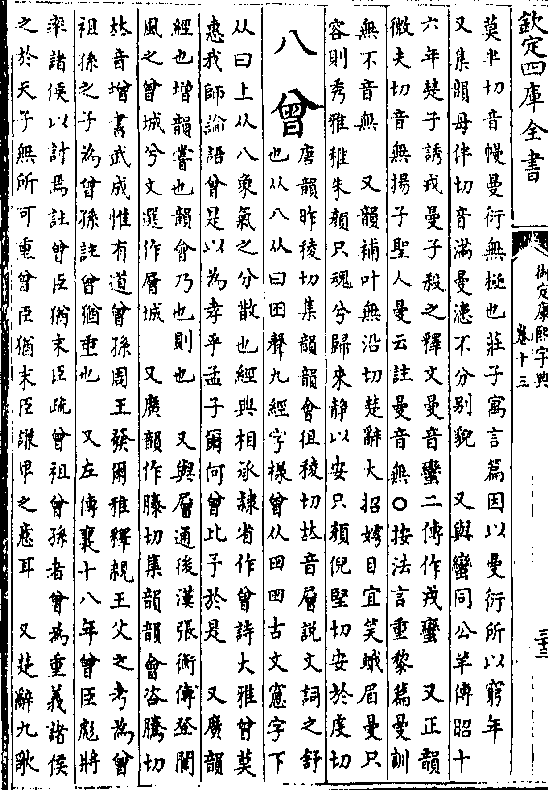 欽定四庫全書
御定康熙字典
卷十三
三三
莫半切音幔曼衍無極也莊子寓言篇因以曼衍所以窮年
又集韻母伴切音滿曼漶不分别貌　又與蠻同公羊傳昭十
六年楚子誘戎曼子殺之釋文曼音蠻二傳作戎蠻　又正韻
微夫切音無揚子聖人曼云註曼音無○按法言重黎篇曼訓
無不音無　又韻補叶無沿切楚辭大招嫮目宜笑蛾眉曼只
容則秀雅稚朱顔只魂兮歸來静以安只顔倪堅切安於虔切
八
曾
唐韻昨稜切集韻韻會徂稜切𠀤音層説文詞之舒
也从八从曰囱聲九經字様曾从囱囱古文窻字下
从曰上从八象氣之分散也經典相承隷省作曾詩大雅曾莫
惠我師論語曾是以為孝乎孟子爾何曾比予於是　又廣韻
經也増韻嘗也韻會乃也則也　又與層通後漢張衡傳登閬
風之曾城兮文選作層城　又廣韻作滕切集韻韻會咨騰切
𠀤音增書武成惟有道曾孫周王發爾雅釋親王父之考為曾
祖孫之子為曾孫註曾猶重也　又左傳襄十八年曾臣彪將
率諸侯以討焉註曾臣猶末臣疏曾祖曾孫者曾為重義諸侯
之於天子無所可重曾臣猶末臣謙卑之意耳　又楚辭九歌